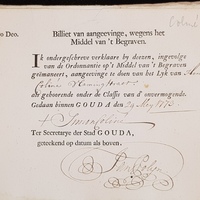 o Deo.
Billiet van aangeevinge, wegens het
Middel van 't Begraven.
Ik ondergeschreve verklaare by deezen, ingevolge
van de Ordonnantie op 't Middel van 't Begraven
geëmaneert, aangeevinge te doen van het Lyk van
Coline
als gehoorende onder de Classis van d' onvermogende.
Gedaan binnen GOUDA den 29 May 1772
Ter Secretarye der Stad GOUDA,
geteekend op datum als boven.